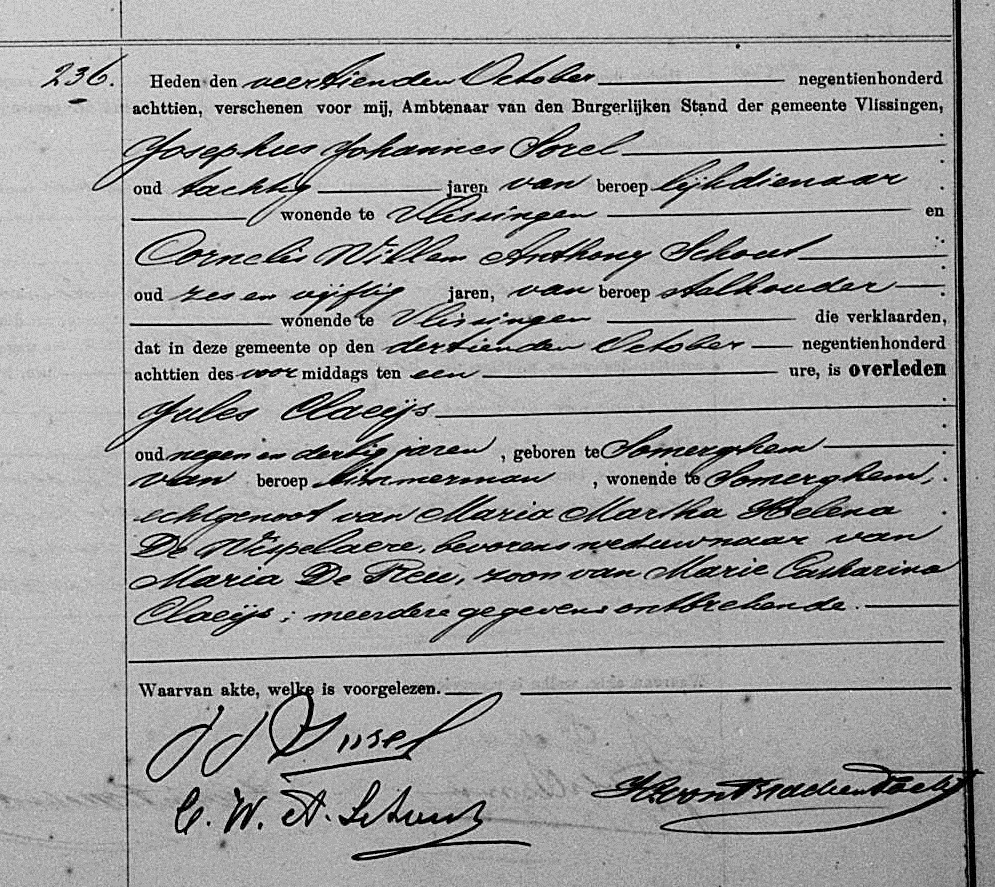 236.
Heden den veertienden October negentienhonderd
achttien, verschenen voor mij, Ambtenaar van den Burgerlijken Stand der gemeente Vlissingen,
Josephus Johannes Sorel
oud tachtig jaren van beroep lijkdienaar
wonende te Vlissingen en
Cornelis Willem Anthony Schout
oud zes en vijftig jaren, van beroep stalhouder
wonende te Vlissingen die verklaarden,
dat in deze gemeente op den dertienden October negentienhonderd
achttien des voor middags ten een ure, is overleden
Jules Claeijs
oud negen en dertig jaren, geboren te Somerghem
van beroep timmerman, wonende te Somerghem,
echtgenoot van Maria Martha Helena
De Wispelaere, bevorens weduwnaar van
Maria De Reu, zoon van Marie Catharina
Claeijs; meerdere gegevens ontbrekende.
Waarvan akte, welke is voorgelezen.
J J Sorel
C. W. A. Schout